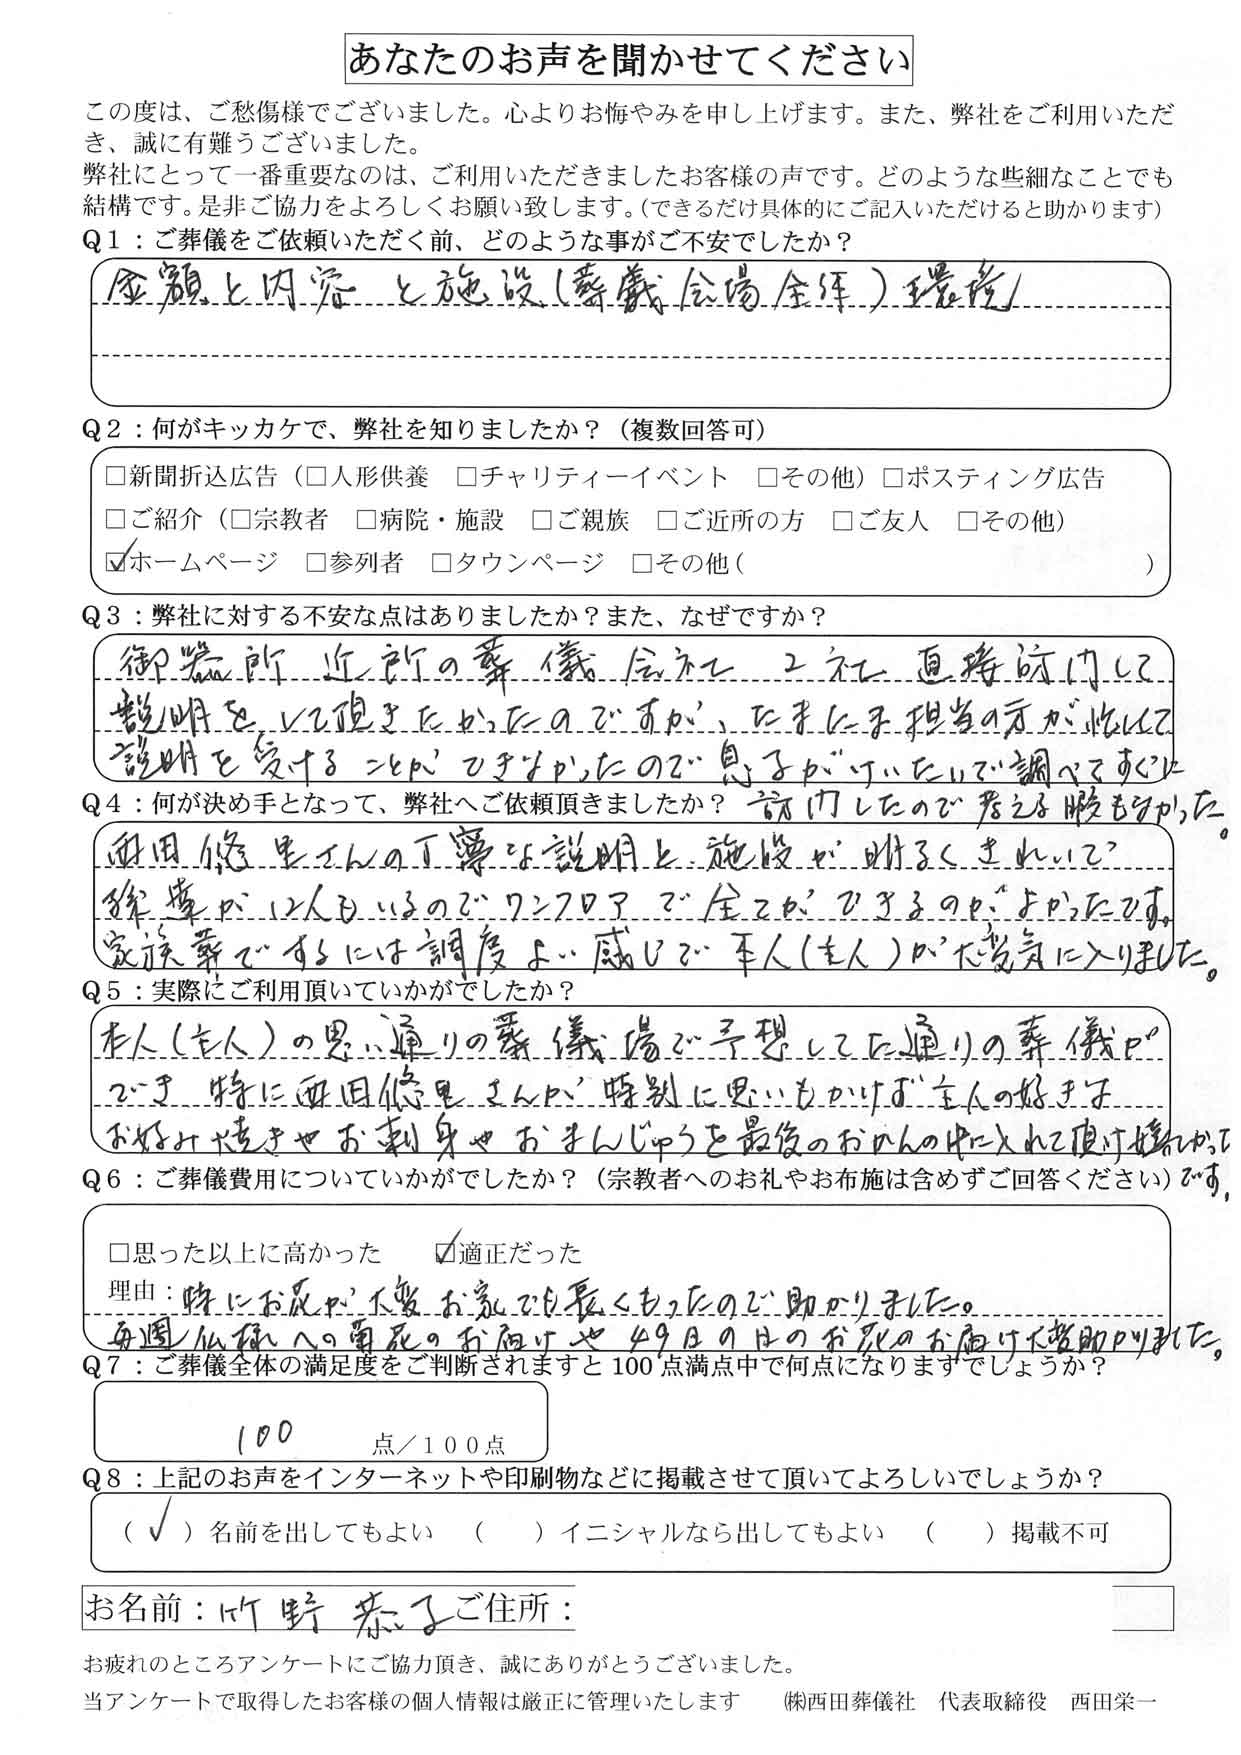 あなたのお声を聞かせてください
この度は、ご愁傷様でございました。心よりお悔やみを申し上げます。また、弊社をご利用いただ
き、誠に有難うございました。
弊社にとって一番重要なのは、ご利用いただきましたお客様の声です。どのような些細なことでも
結構です。是非ご協力をよろしくお願い致します。（できるだけ具体的にご記入いただけると助かります）
Q１：ご葬儀をご依頼いただく前、どのような事がご不安でしたか？
金額と内容 と施設(葬儀会場全体)環境
Q２：何がキッカケで、弊社を知りましたか？（複数回答可）
□新聞折込広告（□人形供養 □チャリティーイベント □その他）□ポスティング広告
□ご紹介（□宗教者 □病院・施設 □ご親族 □ご近所の方 □ご友人 □その他）
☑ホームページ □参列者 □タウンページ □その他（ ）
Q３：弊社に対する不安な点はありましたか？また、なぜですか？
御器所 近所の葬儀会社 2社 直接訪問して
説明をして頂きたかったのですが、たまたま担当の方が忙しくて
説明を受けることができなかったので息子がけいたいで調べてすぐに
訪問したので考える暇もなかった。
Q４：何が決め手となって、弊社へご依頼頂きましたか？
西田悠里さんの丁寧な説明と施設が明るくきれいで
孫達が12人もいるのでワンフロアで全てができるのがよかったです。
家族葬でするには調度よい感じで本人(主人)が大変気に入りました。
Q５：実際にご利用頂いていかがでしたか？
本人(主人)の思い通りの葬儀場で予想してた通りの葬儀が
でき 特に西田悠里さんが特別に思いもかけず主人の好きな
お好み焼きやお刺身やおまんじゅうを最後のおかんの中に入れて頂け嬉しかった
です。
Q６：ご葬儀費用についていかがでしたか？（宗教者へのお礼やお布施は含めずご回答ください）
□思った以上に高かった ☑適正だった
理由：特にお花が大変お家でも長くもったので助かりました。
毎週仏様への菊花のお届けや49日の日のお花のお届け大変助かりました。
Q７：ご葬儀全体の満足度をご判断されますと 100 点満点中で何点になりますでしょうか？
100 点／１００点
Q８：上記のお声をインターネットや印刷物などに掲載させて頂いてよろしいでしょうか？
（✓）名前を出してもよい （ ）イニシャルなら出してもよい （ ）掲載不可
お名前：竹野 恭子 ご住所：
お疲れのところアンケートにご協力頂き、誠にありがとうございました。
当アンケートで取得したお客様の個人情報は厳正に管理いたします ㈱西田葬儀社 代表取締役 西田栄一